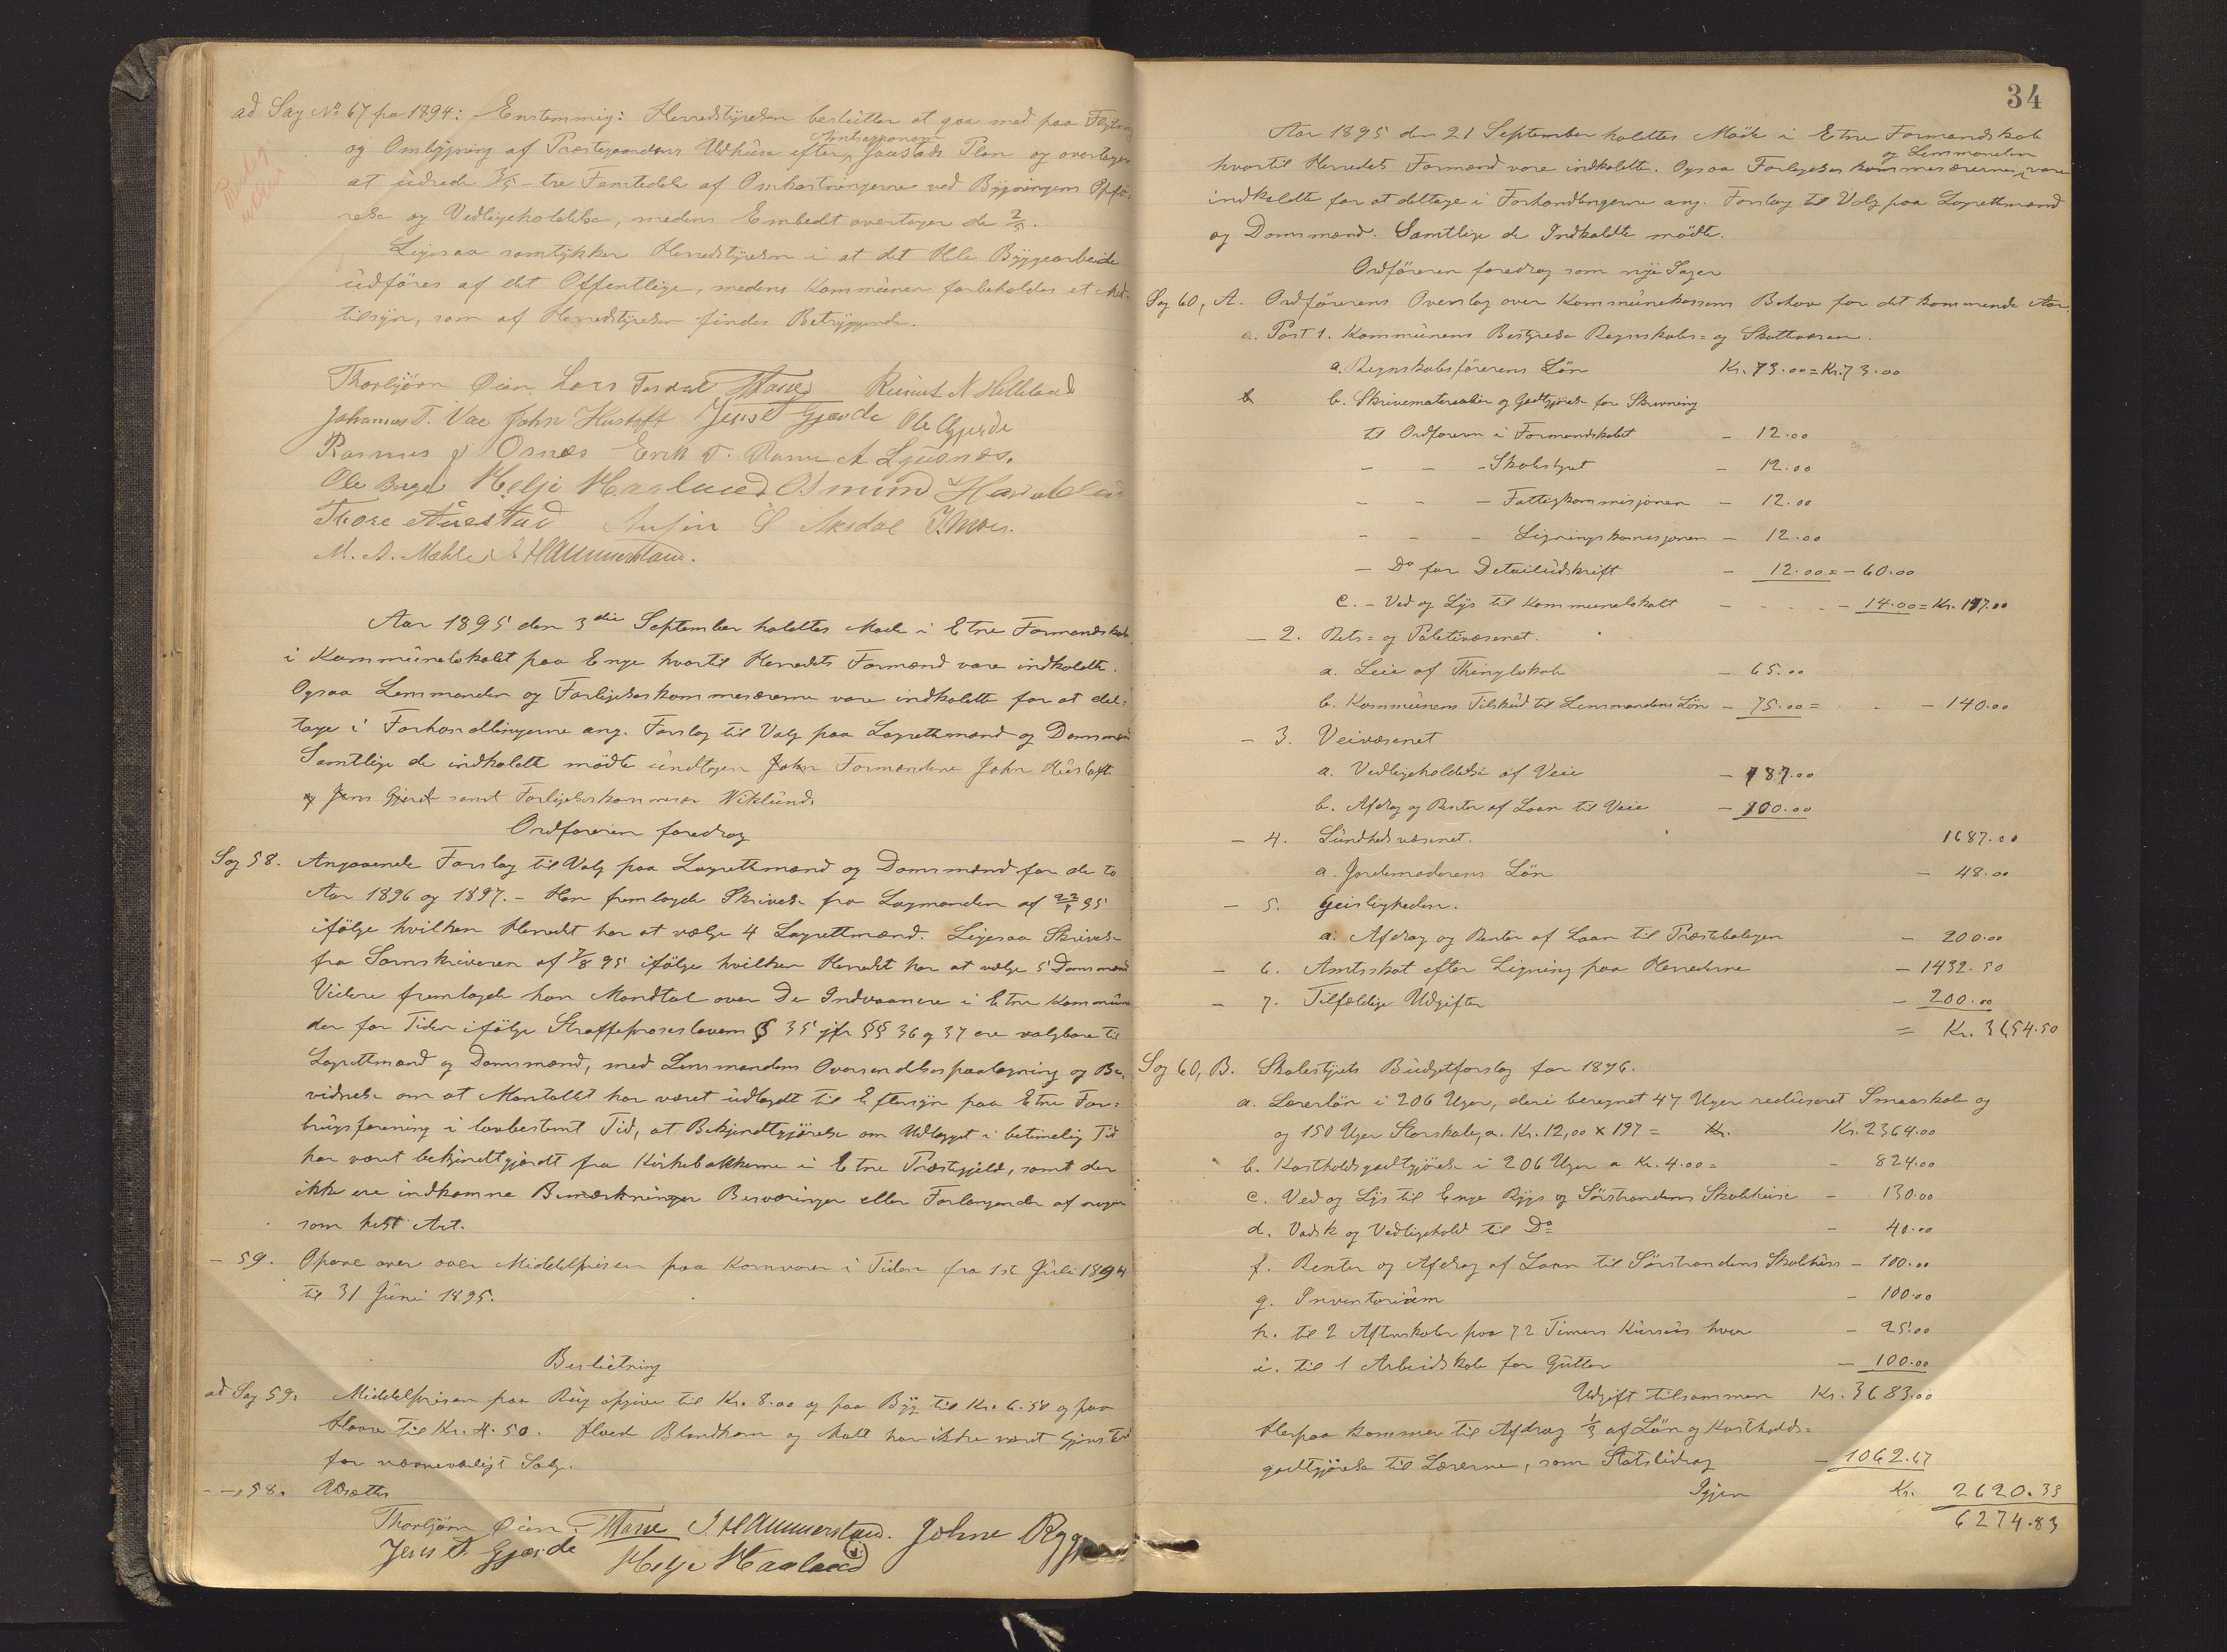 ad Sag No 67 fra 1894: Enstemmig: Herredstyrelsen beslutter at gaa med paa Flytning
Amtsagronom
og Ombygning af Præstegaardens Udhuse efter Jaastads Plan og overtager
at udrede 3/5 - tre Femtedele af Omkostningerne ved Bygningens Opfø-
relse og Vedligeholdelse, medens Embedet overtager de 2/5.
Ligesaa samtykker Herredstyrelsen i at det Hele Byggearbeide
udføres af det Offentlige, medens Kommunen forbeholdes et Med-
tilsyn, som af Herredstyrelsen findes Betryggende.
Thorbjørn Øien Lars Fosdal Rasmus N Helleland
Johannes T. Vae John Hustoft Jens T Gjerde Ole Gjerde
Rasmus J Osnes Erik T. Ramn A Ljusnes.
Ole Helje Haaland Osmund
Thore Auestad Anfin S Aksdal J. Moe.
M. A. Mæhle J. Hammerstad.
Aar 1895 den 3die September holdtes Møde i Etne Formandskab
i Kommunelokalet paa Enge hvortil Herredets Formænd vare indkaldte.
Ogsaa Lensmanden og Forligelseskommesærerne vare indkaldte for at del-
tage i Forhandlingerne ang. Forslag til Valg paa Lagrettmænd og Domsmænd
Samtlige de indkaldte mødte undtagen John Formændene John Hustoft
og Jens Gjerde samt Forligelseskommesær Viklund.
Ordføreren foredrog
Sag 58. Angaaende Forslag til Valg paa Lagrettmænd og Domsmænd for de to
Aar 1896 og 1897. - Han fremlagde Skrivelse fra Lagmanden af 22/ 95
ifølge hvilken Herredet har at vælge 4 Lagrettmænd. Ligesaa Skrivelse
fra Sorenskriveren af 7/8 95 ifølge hvilken Herredet har at vælge 5 Domsmænd
Videre fremlagde han Mandtal over De Indvaanere i Etne Kommune
der for Tiden ifølge Straffeproseslovens § 35 jfr §§ 36 og 37 ere valgbare til
Lagrettmænd og Domsmænd, med Lensmandens Oversendelsespaategning og Be-
vidnelse om at Mantallet har været udlagdt til Eftersyn paa Etne For-
brugsforening i lovbestemt Tid, at Bekjendtgjørelse om Udlægget i betimelig Tid
har været bekjendtgjordt fra Kirkebakkerne i Etne Præstegjeld, samt der
ikke ere indkomne Bemærkninger Besværinger eller Forlangender af nogen
som helst Art.
- 59. Opgave over over Middelprisen paa Kornvarer i Tiden fra 1st Juli 1894
til 31 Juni 1895.
Beslutning
ad Sag 59. Middelprisen paa Rug opgives til Kr. 8.00 og paa Byg til Kr. 6.50 og paa
Havre til Kr. 4.50. Hvede Blandkorn og Malt har ikke været Gjenstand
for nævneværdigt Salg.
- - 58. Udsættes
Thorbjørn Øien. J. Hammerstad. Johne Rygg
Jens T. Gjerde Helje Haaland
34
Aar 1895 den 21 September holdtes Møde i Etne Formandskab
og Lensmanden
hvortil Herredets Formænd vare indkaldte. Ogsaa Forligelseskommesærerne vare
indkaldte for at deltage i Forhandlingerne ang. Forslag til Valg paa Lagrettmænd
og Domsmænd. Samtlige de Indkaldte mødte.
Ordføreren foredrog som nye Sager
Sag 60, A. Ordførerens Overslag over Kommunekassens Behov for det kommende Aar.
a. Post 1. Kommunens Bestyrelse Regnskabs- og Skattvæsen.
a. Regnskabsførerens Løn Kr. 73.00 = Kr. 73.00
b. Skrivematerialier og Godtgjørelse for Skrivning
til Ordføreren i Formandskabet - 12.00
- - - Skolestyret - 12.00
- - - Fattigkommisjonen - 12.00
- - - Ligningskomisjonen - 12.00
- Do for Detailudskrift - 12.00 = - 60.00
c. - Ved og Lys til Kommunelokalet - - 14.00 = Kr. 147.00
- 2. Rets- og Politivæsenet.
a. Leie af Thinglokale - 65.00
b. Kommunens Tilskud til Lensmandens Løn - 75.00 = - 140.00
- 3. Veivæsenet
a. Vedligeholdelse af Veie - 787.00
b. Afdrag og Renter af Laan til Veie - 900.00
- 4. Sundhedsvæsenet. 1687.00
a. Jordemoderens Løn - 48.00
- 5. Geistligheden.
a. Afdrag og Renter af Laan til Præsteboligen - 200.00
- 6. Amtsskat efter Ligning paa Herrederne - 1432.50
- 7. Tilfældige Udgifter - 200.00
= Kr. 3654.50
Sag 60, B. Skolestyrets Budgetforslag for 1896.
a. Lærerløn i 206 Uger, deri beregnet 47 Uger reduseret Smaaskole og
og 150 Uger Storskole, a. Kr. 12,00 x 197 = Kr. Kr. 2364.00
b. Kostholdsgodtgjørelse i 206 Uger a Kr. 4.00 = - 824.00
c. Ved og Lys til Enge Rygs og Sørstrandens Skolehuse - 130.00
d. Vadsk og Vedligehold til Do - 40.00
f. Renter og Afdrag af Laan til Sørstrandens Skolehus - 100.00
g. Inventarium - 100.00
h. til 2 Aftenskoler paa 72 Timers Kursus hver - 25.00
i. til 1 Arbeidskole for Gutter - 100.00
Udgift tilsammen Kr. 3683.00
Herpaa kommer til Afdrag 1/3 af Løn og Kostholds-
godtgjørelse til Lærerne, som Statsbidrag - 1062.67
Igjen Kr. 2620.33
6274.83